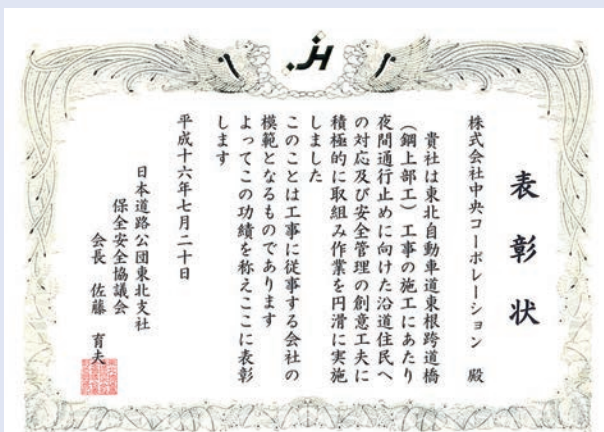 JH
表彰状
株式会社中央コーポレーション 殿
貴社は東北自動車道東根跨道橋
（鋼上部工）工事の施工にあたり
夜間通行止めに向けた沿道住民へ
の対応及び安全管理の創意工夫に
積極的に取組み作業を円滑に実施
しました
このことは工事に従事する会社の
模範となるものであります
よってこの功績を称えここに表彰
します
平成十六年七月二十日
日本道路公団東北支社
保全安全協議会
会長 佐藤 育夫